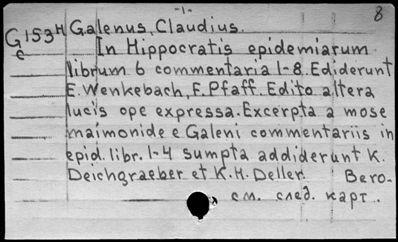 -1-
8
G153H Galenus, Claudius.
c In Hippocratis epidemiarum
librum 6 commentaria 1-8. Ediderunt
E. Wenkebach, F. Pfaff. Edito altera
lucis ope expressa. Excerpta a mose
maimonide e Galeni commentariis in
epid. libr. 1-4 sumpta addiderunt K.
Deichgraeber et K.H. Deller. Bero-
см. след. карт.